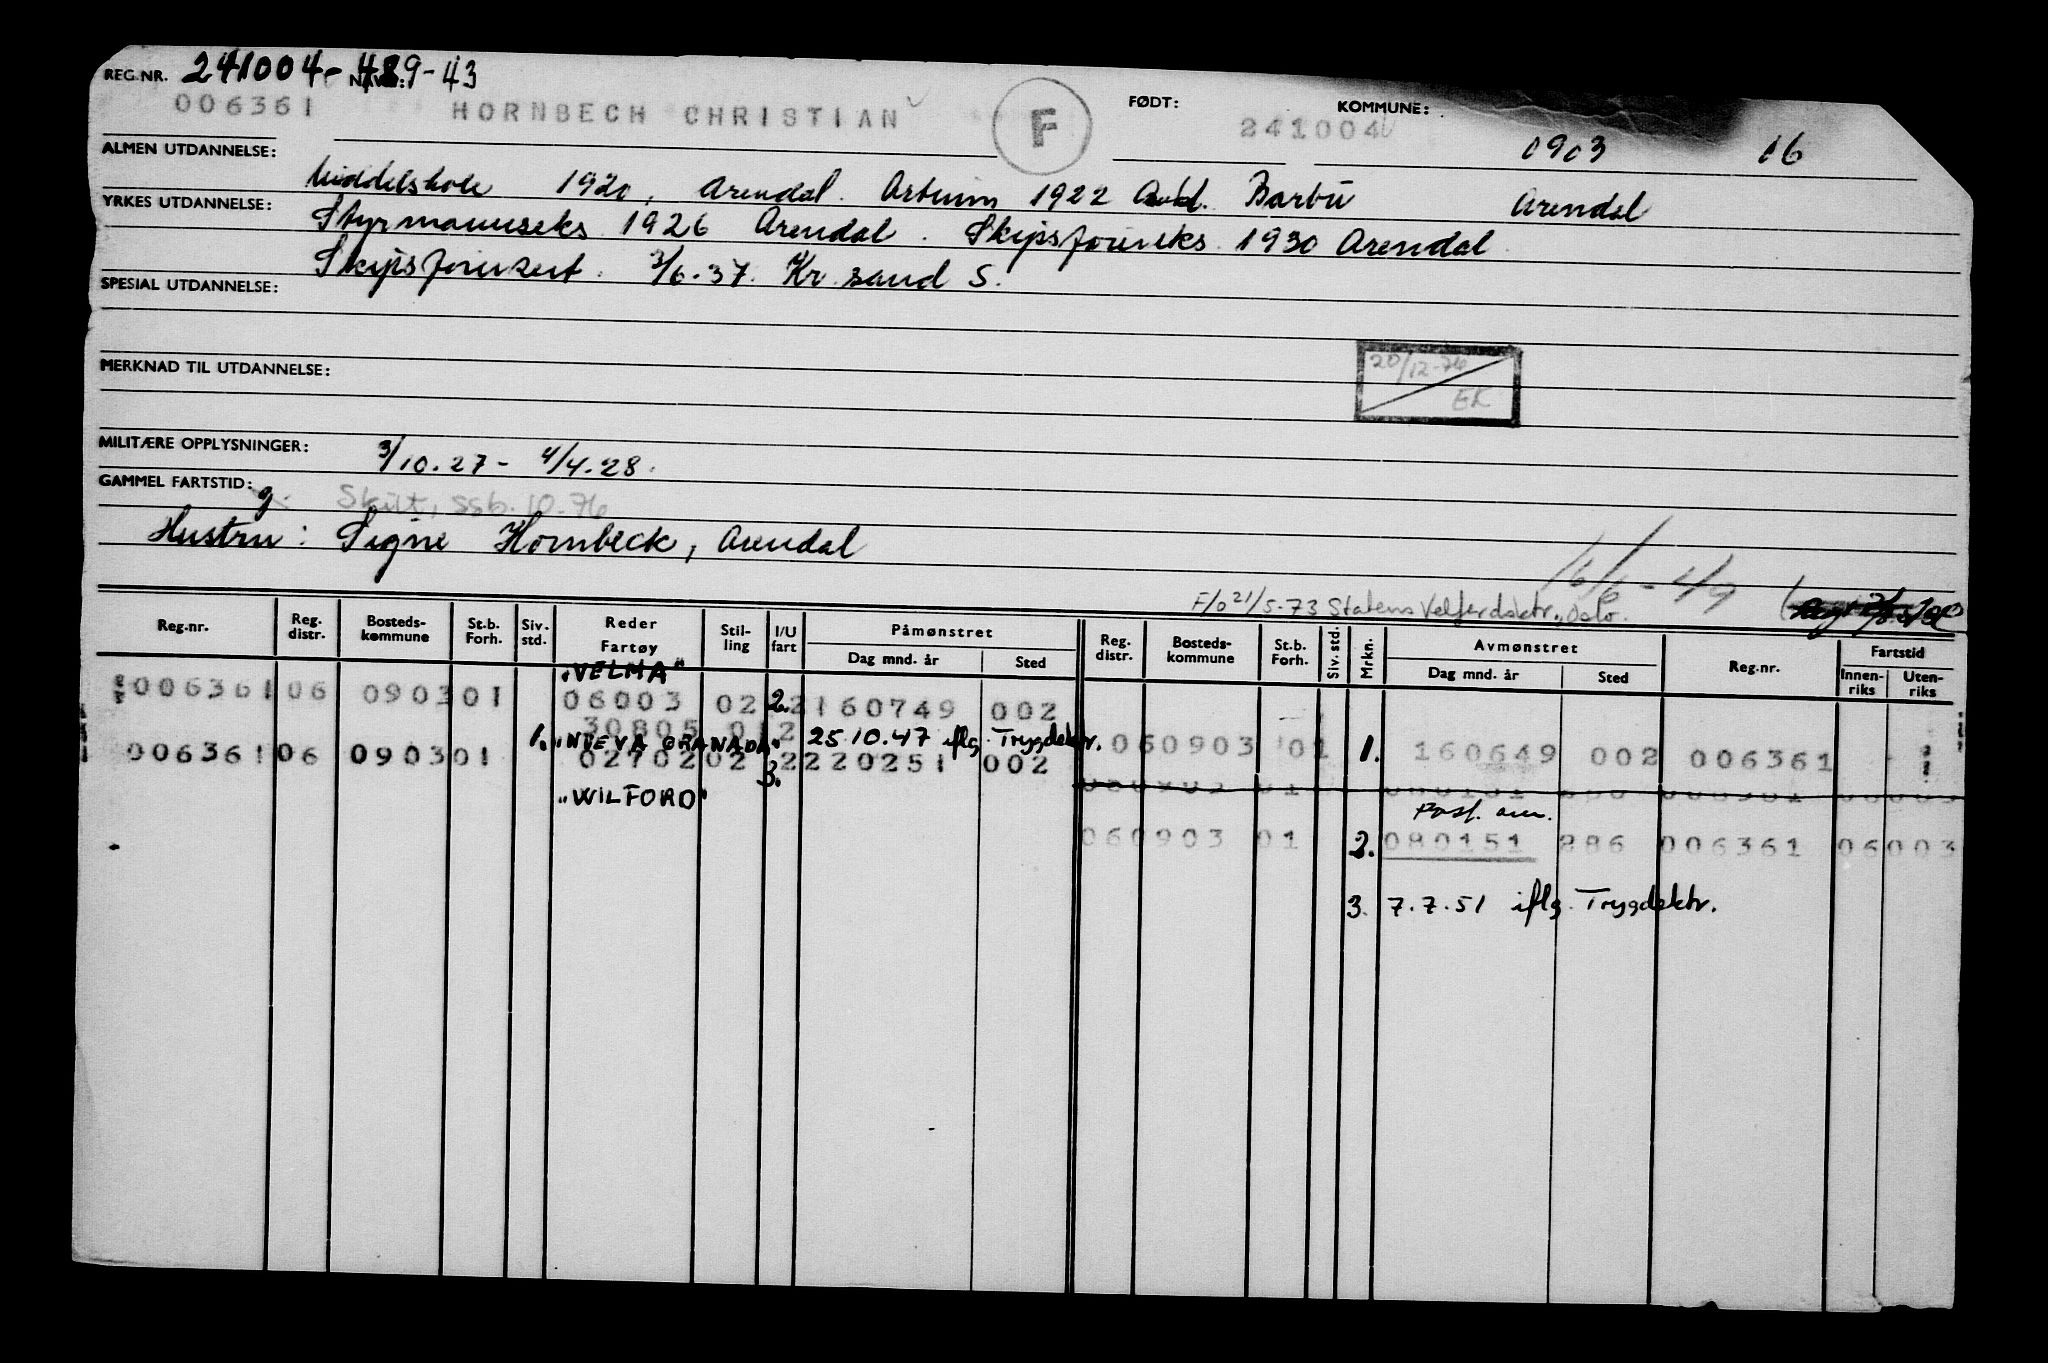 REG.NR. 241004-489-43 NAVN:
006361 HORNBECH CHRISTIAN F FØDT: 241004 KOMMUNE: 0903 16
ALMEN UTDANNELSE: Middelskole 1920, Arendal. Artium 1922 Barbu Arendal
YRKES UTDANNELSE: Styrmannseks 1926 Arendal. Skipsførereks 1930 Arendal
Skipsførersert. 3/6.37. Kr.sand S.
SPESIAL UTDANNELSE:
MERKNAD TIL UTDANNELSE:
20/12-76
EK
MILITÆRE OPPLYSNINGER: 3/10.27 - 4/4.28.
GAMMEL FARTSTID: Skilt, ssb. 10-76
Hustru: Signe Hornbeck, Arendal
16/6-49
F/o 21/5-73 Statens Velferdsktr., Oslo.
Reg.nr. Reg. distr. Bosteds-kommune St.b. Forh. Siv. std. Reder Fartøy Stil-ling I/U fart Påmønstret Dag mnd. år Sted Reg. distr. Bosteds-kommune St.b. Forh. Siv. std. Mrkn. Avmønstret Dag mnd. år Sted Reg.nr. Fartstid Innen-riks Uten-riks
"VELMA"
006361 06 0903 01 06003 02 2. 2 160749 002
30805 01 2
1. "NUEVA GRANADA" 25.10.47 iflg. Trygdektr. 060903 01 1. 160649 002 006361
006361 06 0903 01 02702 02 3. 2 220251 002
"WILFORD"
Pass. am.
060903 01 2. 080151 286 006361 06003
3. 7.7.51 iflg. Trygdektr.